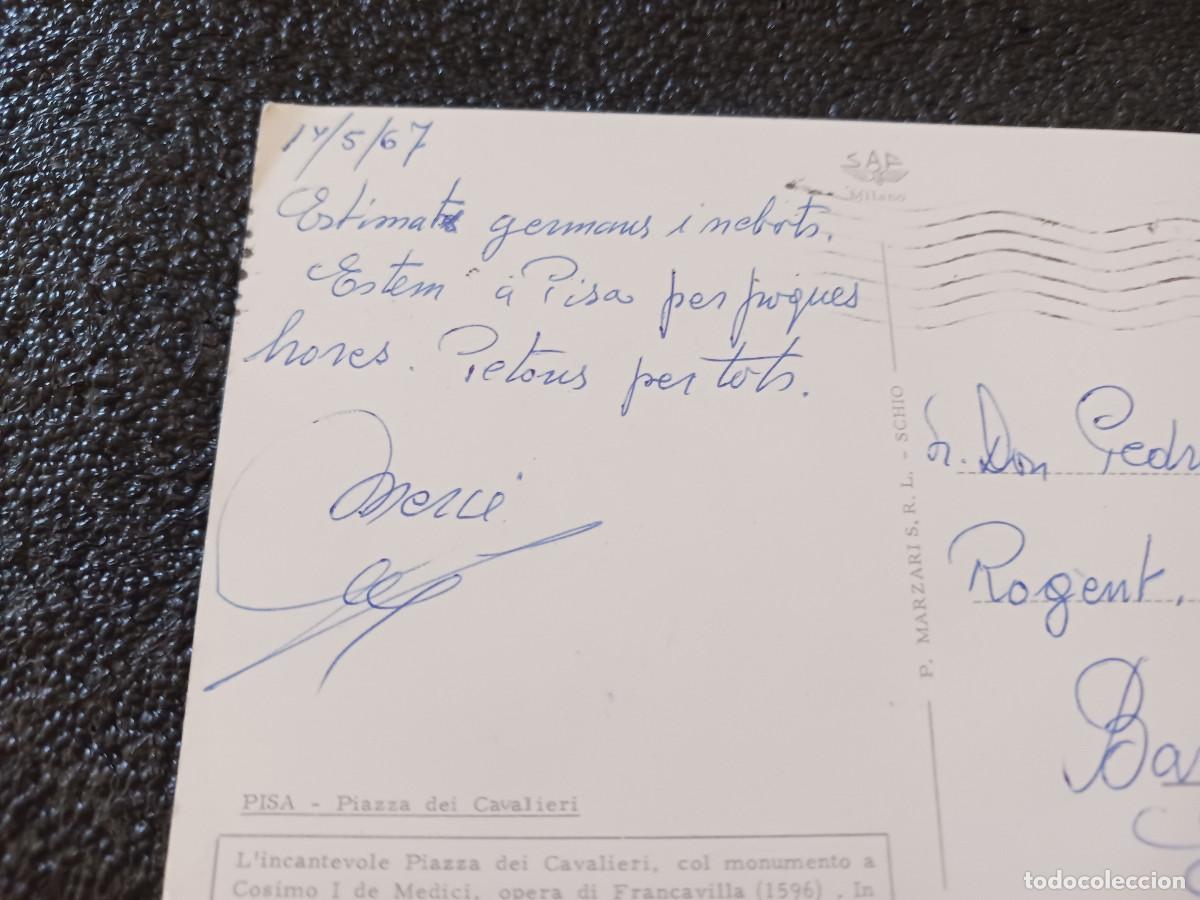 14/5/67
Estimats germans i nebots.
Estem à Pisa per poques
hores. Petons per tots.
Mercè
SAF
Milano
P. MARZARI S. R. L. - SCHIO
Sr. Don Pedr
Rogent,
Ba
PISA - Piazza dei Cavalieri
L'incantevole Piazza dei Cavalieri, col monumento a
Cosimo I de Medici, opera di Francavilla (1596). In
todocoleccion